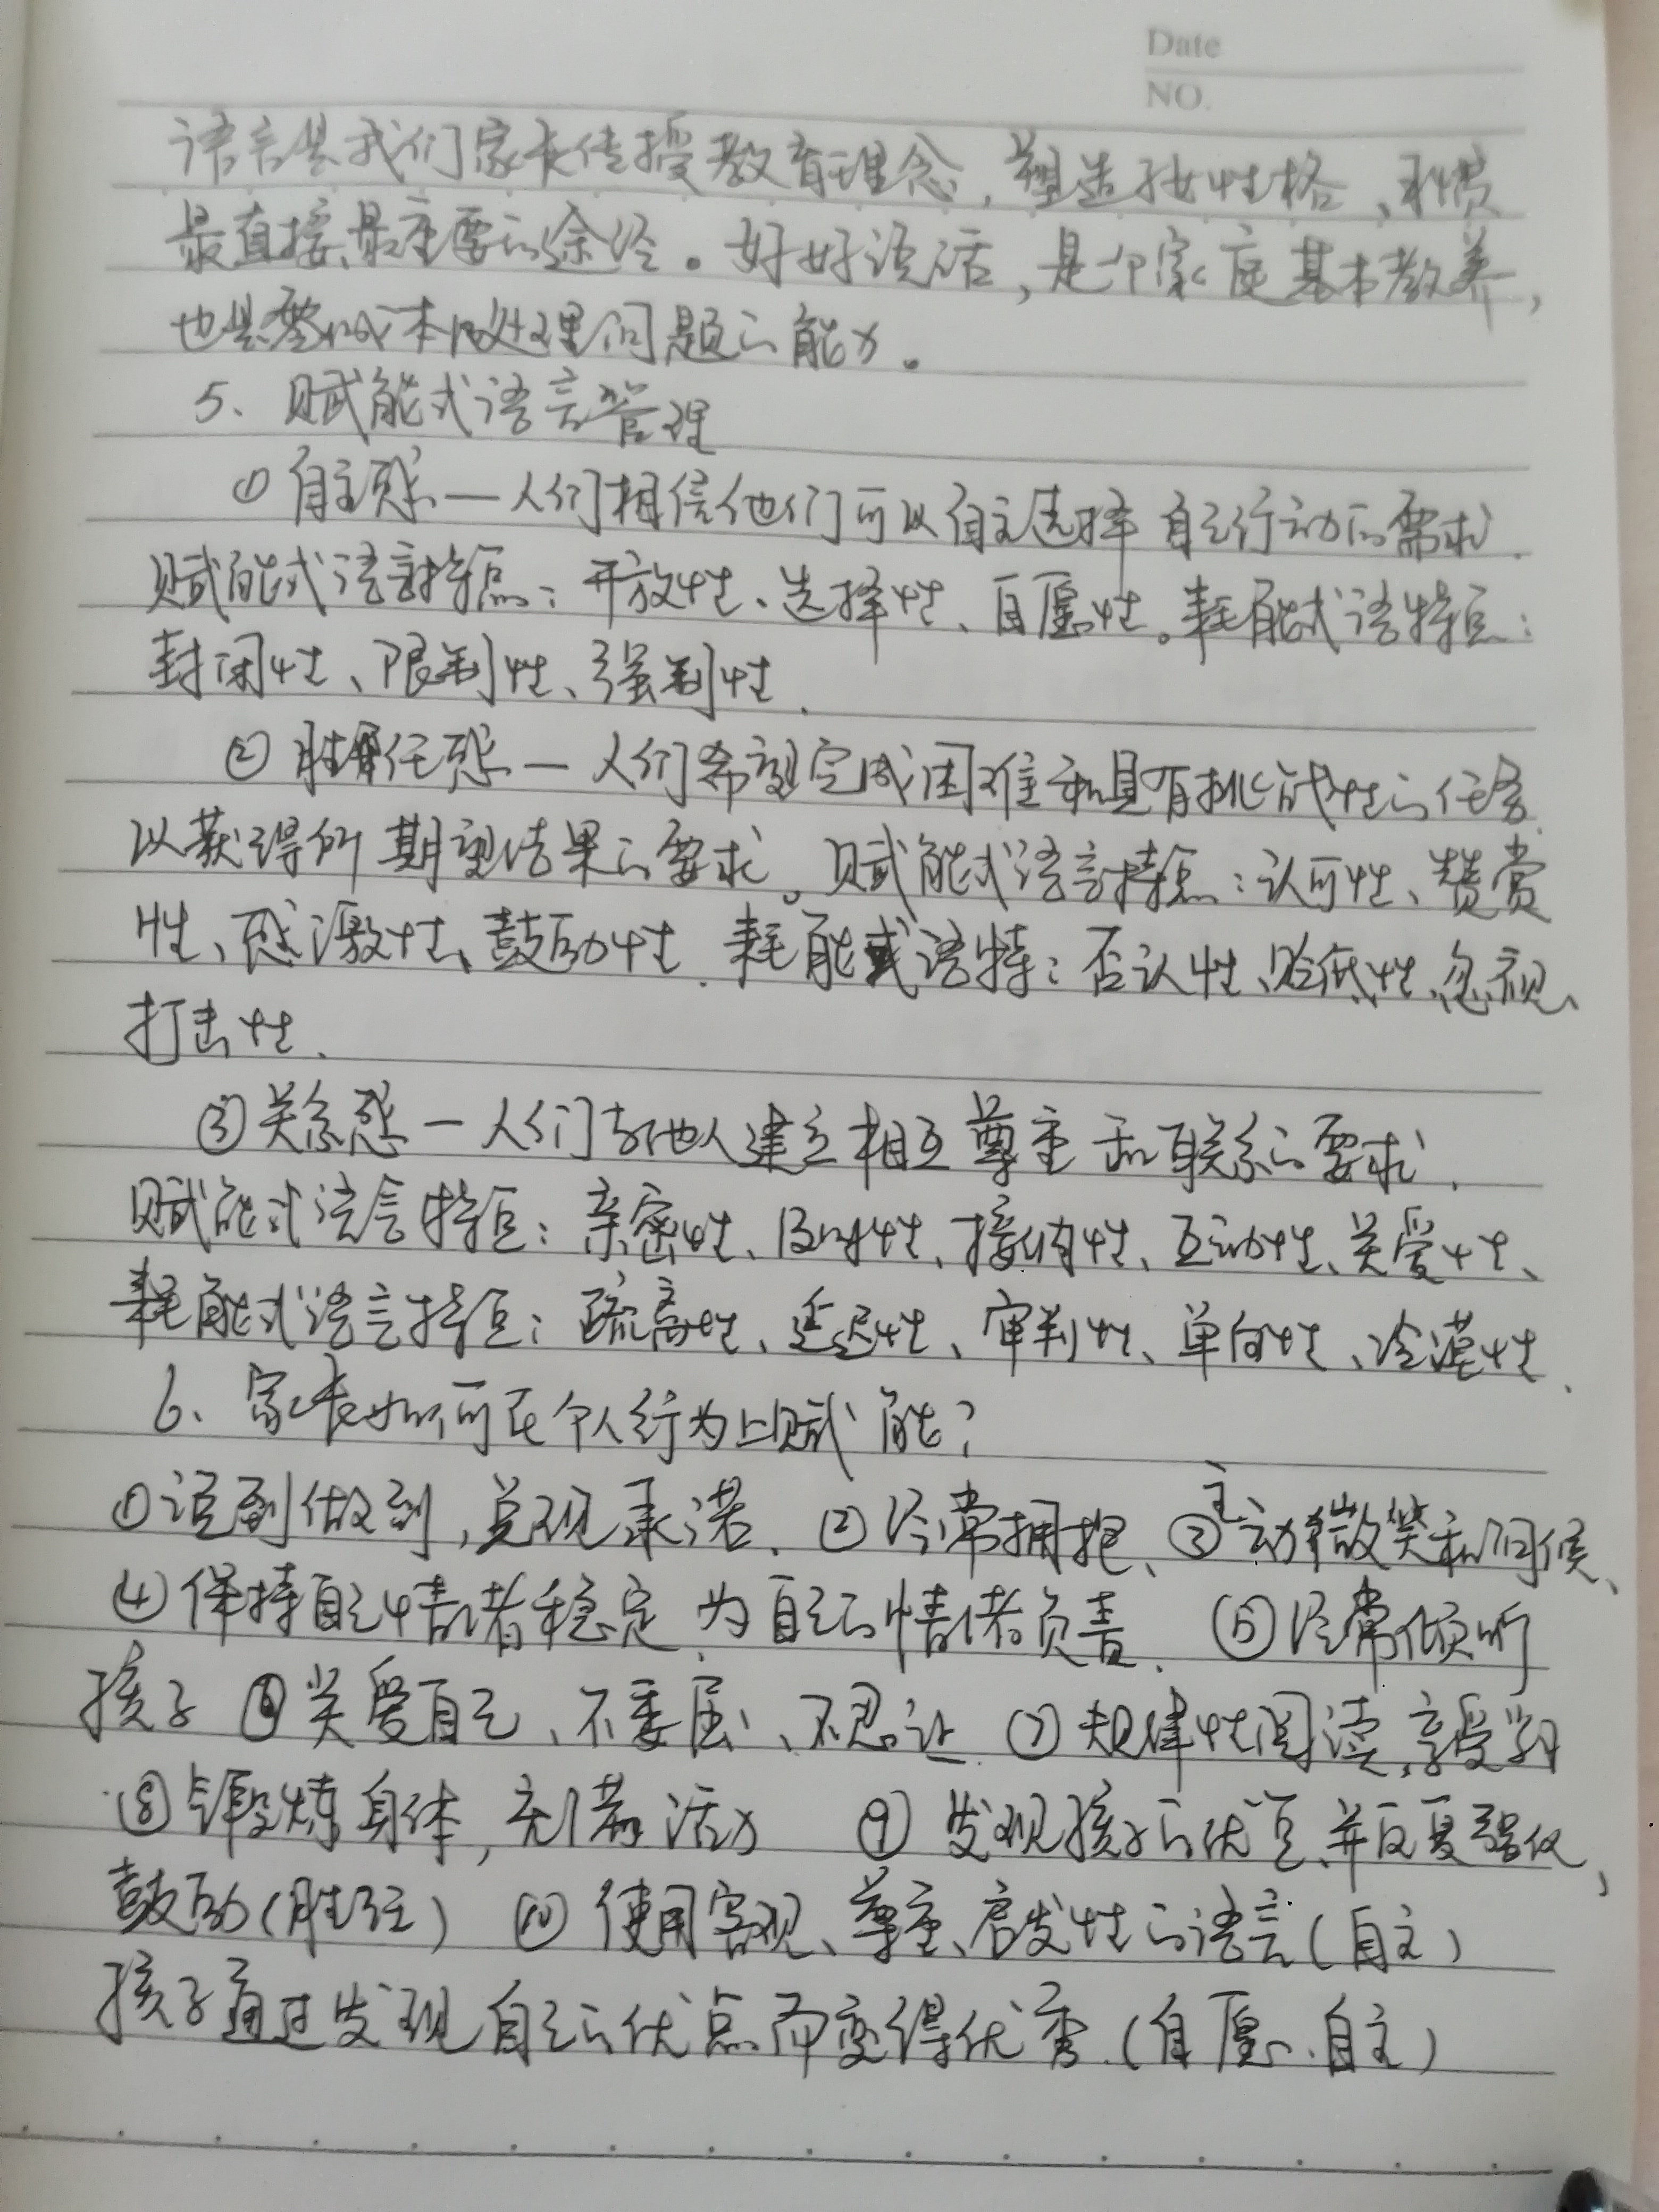 Date
NO.
语言是我们家长传授教育理念,塑造孩性格、习惯
最直接、最重要的途径。好好说话,是一个家庭基本教养,
也是处理问题的能力。
5、赋能式语言管理
① 自主感—人们相信他们可以自主选择自己行动的需求.
赋能式语言特点:开放性、选择性、自愿性。耗能式语特点:
封闭性、限制性、强制性.
② 胜任感—人们希望完成困难和具有挑战性的任务
以获得所期望结果的要求。赋能式语言特点:认可性、赞赏
性、感激性、鼓励性.耗能式语特:否认性、贬低性、忽视、
打击性、
③ 关系感—人们与他人建立相互尊重和联系的需求.
赋能式语言特点:亲密性、及时性、接纳性、互动性、关爱性、
耗能式语言特点:疏离性、延迟性、审判性、单向性、冷漠性、
6、家长如何在个人行为上赋能?
①说到做到,兑现承诺、②经常拥抱、③主动微笑和问候、
④保持自己情绪稳定,为自己的情绪负责、⑤经常倾听
孩子 ⑥关爱自己、不委屈、不忍让.⑦规律性阅读,享受学习
⑧锻炼身体,充满活力 ⑨发现孩子的优点,并反复强化,
鼓励(胜任) ⑩使用客观、尊重、启发性的语言(自主)
孩子通过发现自己的优点而变得优秀.(自愿、自主)